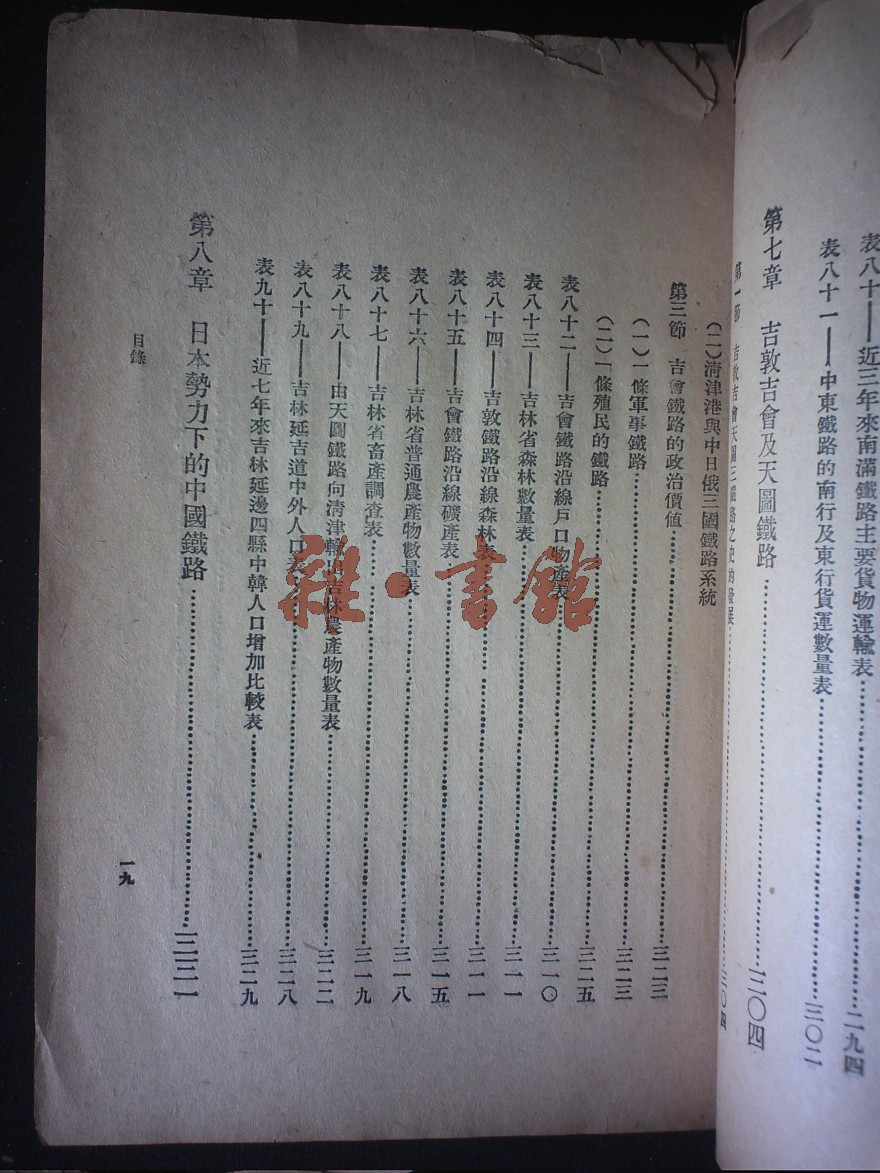 表八十——近三年來南滿鐵路主要貨物運輸表……二九四
表八十一——中東鐵路的南行及東行貨運數量表……三〇二
第七章 吉敦吉會及天圖鐵路……三〇四
第一節 吉敦吉會天圖三鐵路之史的發展……三〇四
(二)清津港與中日俄三國鐵路系統
第三節 吉會鐵路的政治價值……三二三
(一)一條軍事鐵路……三二三
(二)一條殖民的鐵路……三二五
表八十二——吉會鐵路沿線戶口物產表……三一〇
表八十三——吉林省森林數量表……三一一
表八十四——吉敦鐵路沿線森林表……三一一
表八十五——吉會鐵路沿線礦產表……三一五
表八十六——吉林省普通農產物數量表……三一八
表八十七——吉林省畜產調查表……三一九
表八十八——由天圖鐵路向清津輸出吉林農產物數量表……三二二
表八十九——吉林延吉道中外人口表……三二八
表九十——近七年來吉林延邊四縣中韓人口增加比較表……三二九
第八章 日本勢力下的中國鐵路……三三一
目錄
一九
雜·書館